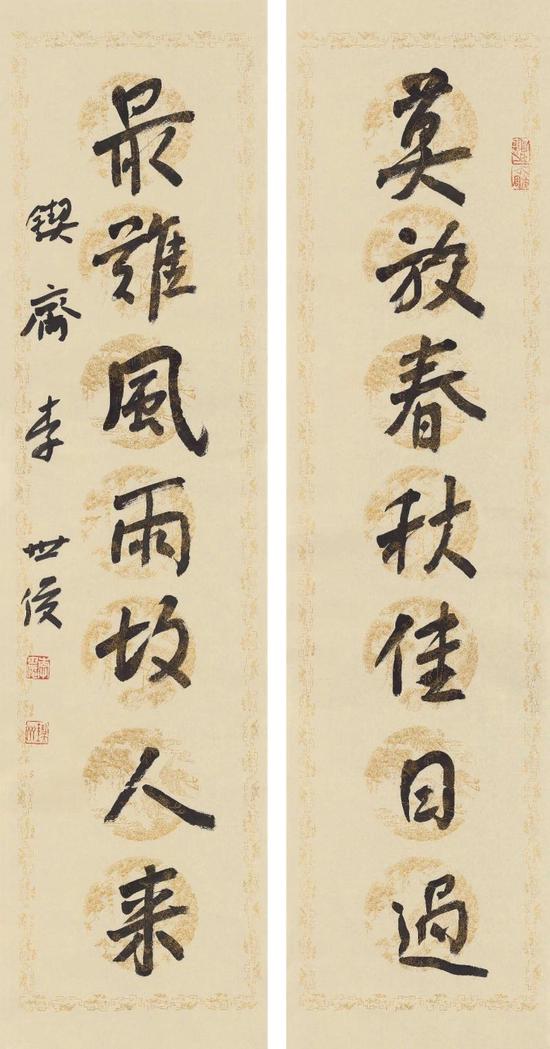 莫放春秋佳日過
最難風雨故人来
鍥齋李世俊